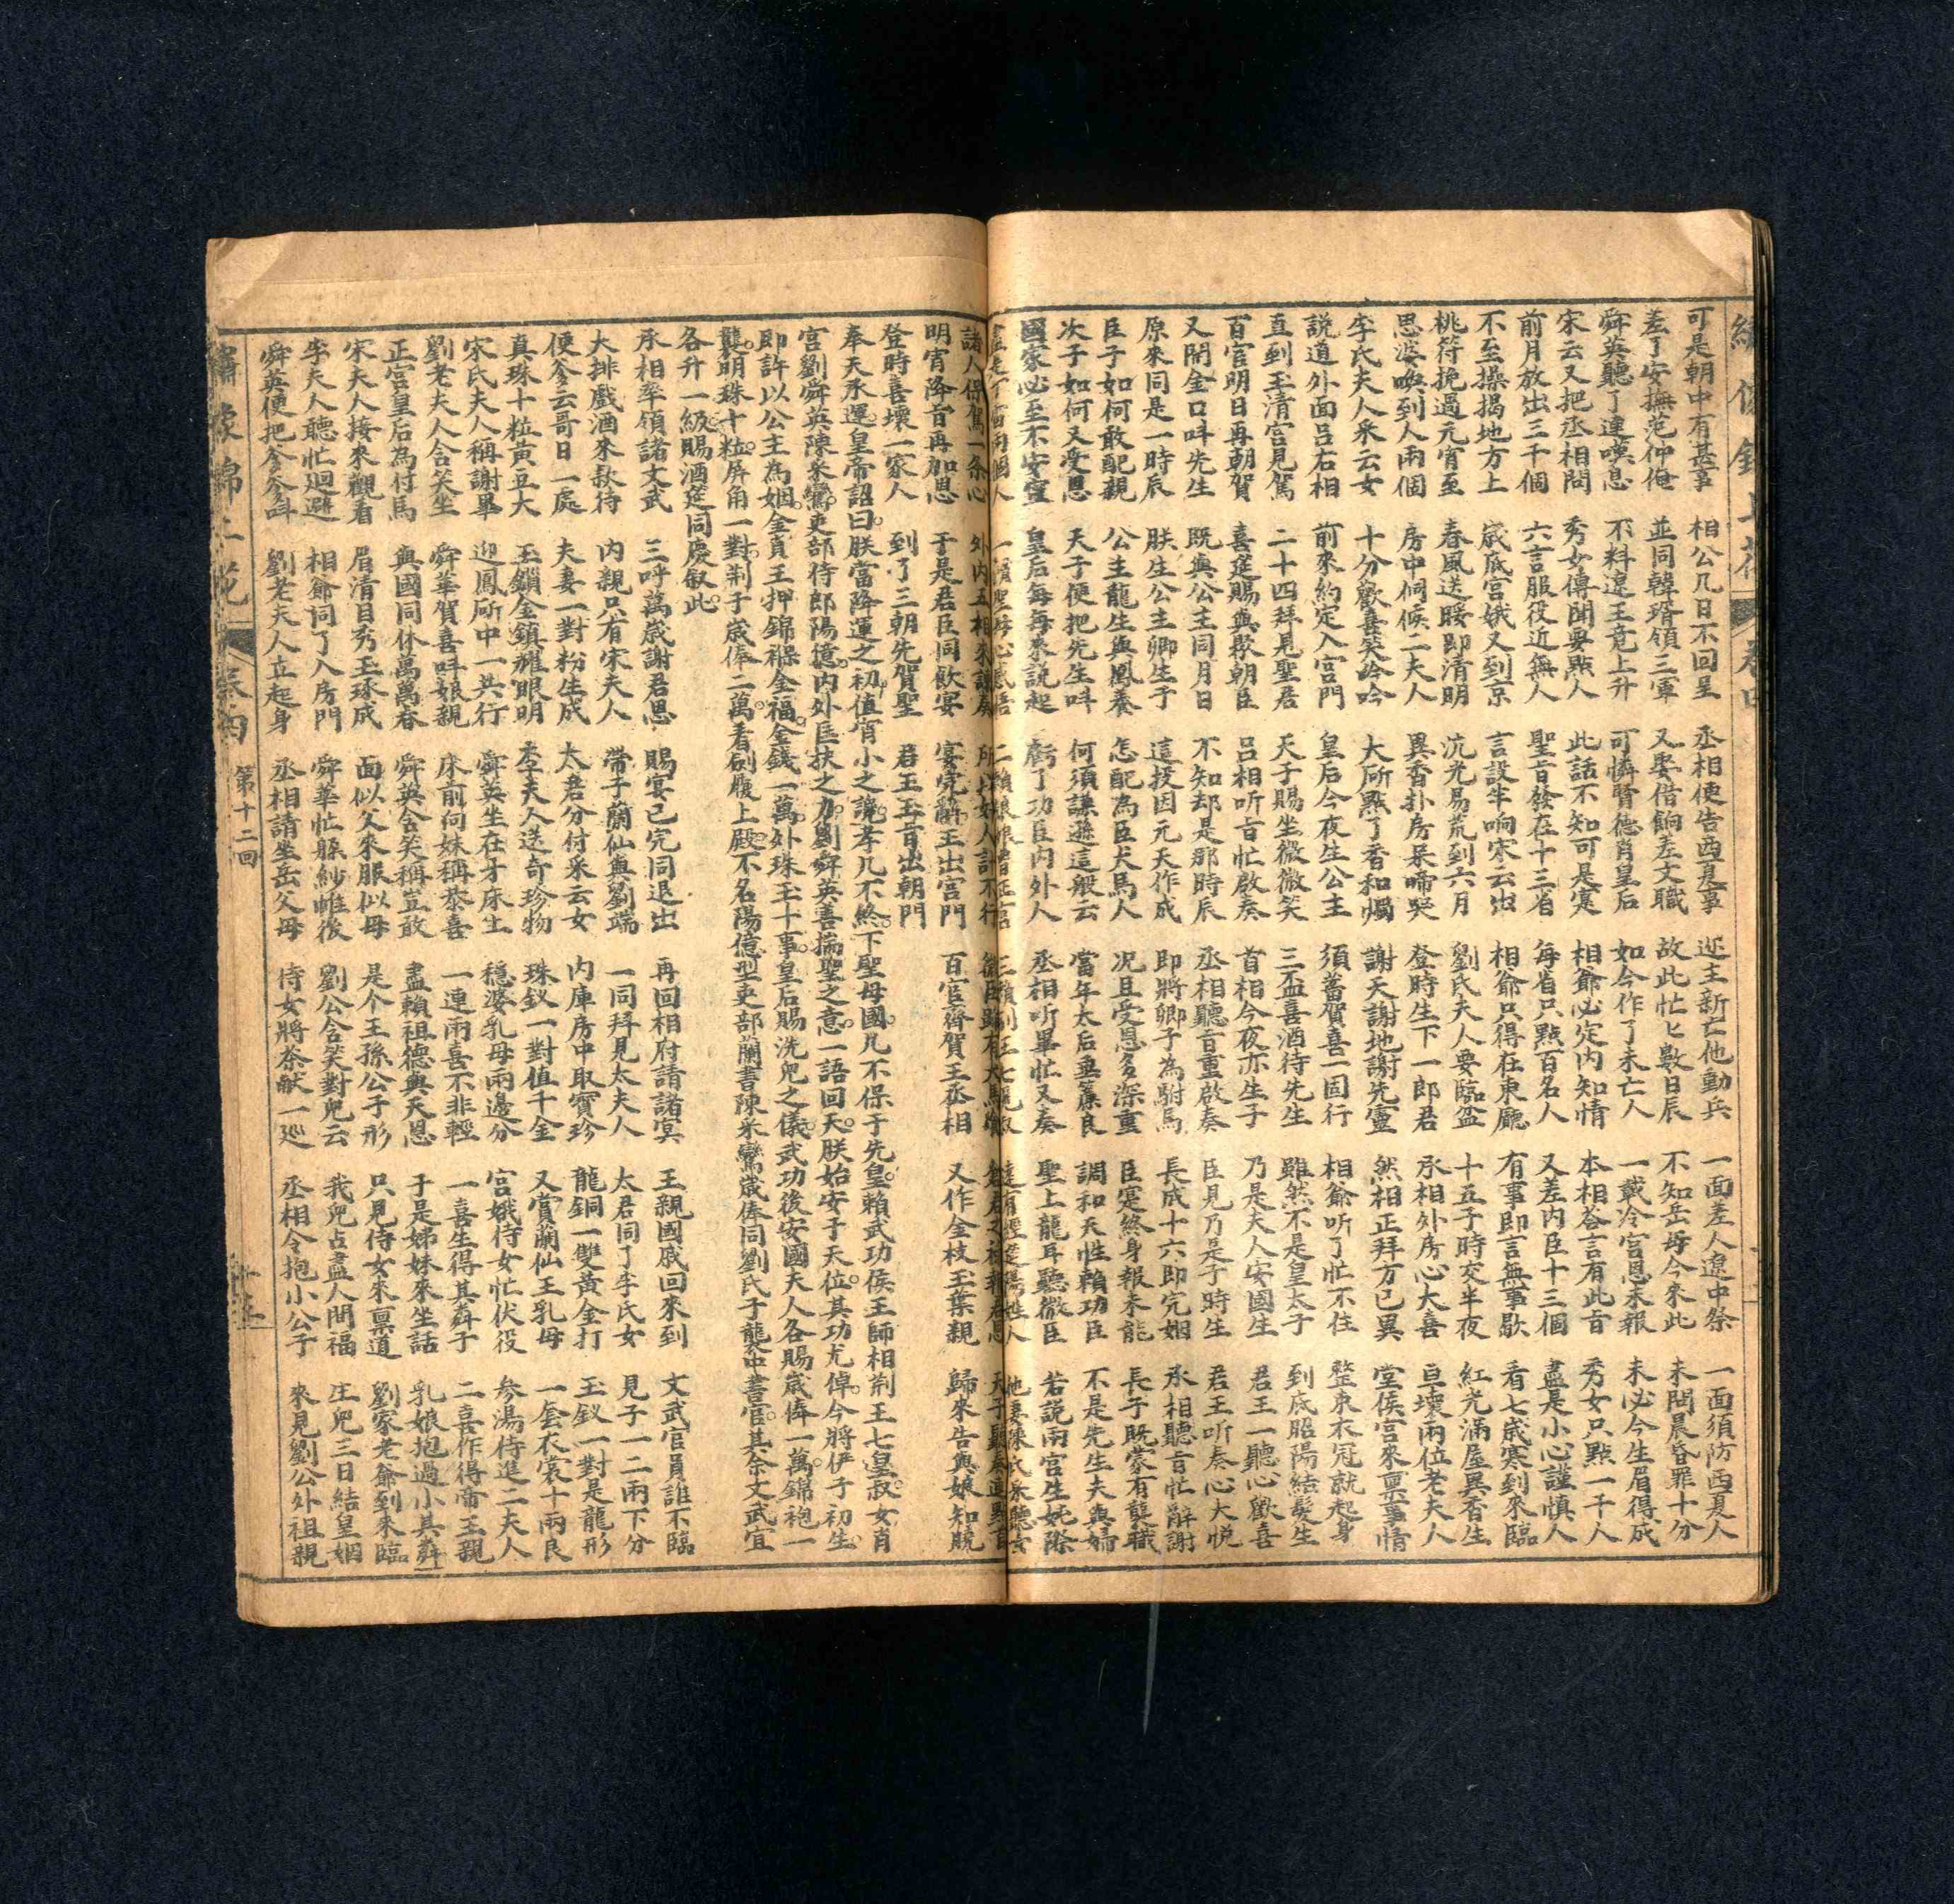 可是朝中有甚事 相公几日不回呈 丞相便告西夏事 遼主新亡他動兵 一面差人遼中祭 一面須防西夏人
差了安撫范仲俺 並同韓琦領三軍 又娶借餉差文職 故此忙匕數日辰 不知岳母今來此 未問晨昏罪十分
舜英聽了連嘆息 不料遼王竟上升 可憐賢德肖皇后 如今作了未亡人 一載冷宮恩未報 未必今生眉得成
宋云又把丞相問 秀女傳聞要點人 此話不知可是寔 相爺必定内知情 本相荅言有此旨 秀女只點一千人
前月放出三千個 六言服役近無人 聖旨發在十三省 每省只點百名人 又差内臣十三個 盡是小心謹慎人
不至操揭地方上 歲底宮娥又到京 言設半响宋云出 相爺只得在東廳 有事即言無事歇 看七歲寒到來臨
桃符挽過元宵至 春風送暖即清明 沉光易荒到六月 劉氏夫人要臨盆 十五子時交半夜 紅光滿屋異香生
思婆喚到人兩個 房中伺候二夫人 異香扑房呆啼哭 登時生下一郎君 承相外房心大喜 亘壞兩位老夫人
李氏夫人采云女 十分歡喜笑吟吟 大所點了香和燭 謝天謝地謝先靈 然相正拜方已異 堂侯宮來稟事情
說道外面呂右相 前來約定入宮門 皇后今夜生公主 須當賀喜一同行 相爺听了忙不住 整束衣冠就起身
直到玉清宮見駕 二十四拜見聖君 天子賜坐微微笑 三盃喜酒待先生 雖然不是皇太子 到底昭陽結髮生
百官明日再朝賀 喜筵賜與衆朝臣 呂相听旨忙啟奏 首相今夜亦生子 乃是夫人安國生 君王一聽心歡喜
又開金口呌先生 既與公主同月日 不知却是那時辰 丞相聽旨重啟奏 臣見乃是子時生 君王听奏心大悅
原來同是一時辰 朕生公主卿生子 這段因元天作成 即將卿子為駙馬 長成十六即完姻 承相聽言忙辭謝
臣子如何敢配親 公主龍生與鳳養 怎配為臣犬馬人 况且受恩多深重 臣寔終身報未能 長子既蒙有襲職
次子如何又受恩 天子便把先生呌 何須謙遜這般云 當年太后垂簾良 調和天性賴功臣 不是先生夫與婦
國家必至不安寧 皇后每每來說起 虧了功臣内外人 丞相听異忙又奏 聖上龍耳聽微臣 若說兩宮生妩隙
諸人保駕一条心
明宵降旨再加恩 于是君臣同飲宴 宴完辭王出宮門 百官齊賀王丞相 又作金枝玉葉親 歸來告與娘知曉
登時喜壞一家人 到了三朝先賀聖 君王玉旨出朝門
奉天承運。皇帝詔曰。朕當降運之初。值宵小之讒。孝几不終。下聖母國。几不保于先皇。賴武功侯王師相荆王七皇叔。女肖
宮劉舜英陳采鸞。吏部侍郎陽億。内外匡扶之力。劉舜英善揣聖之意。一語回天。朕始安于天位。其功尤倬。今將伊子初生。
即許以公主為姻。金賁王押錦褓金福。金錢一萬。外珠玉十事。皇后賜洗兒之儀。武功後安國夫人各賜歲俸一萬。錦袍一
襲。明珠十粒。屏角一對。荆子歲俸二萬。看劍履上殿。不名陽億型吏部蘭書陳采鸞歲俸同劉氏子襲中書官。其余文武宜
各升一級。賜酒筵同慶叙此。
承相率領諸文武 三呼萬歲謝君恩 賜宴已完同退出 再回相府請諸宾 王親國戚回來到 文武官員誰不臨
大排戲酒來款待 内親只有宋夫人 帶子蘭仙與劉端 一同拜見太夫人 太君同了李氏女 見子一二兩下分
便爹云哥日一處 夫妻一對粉生成 太君分付采云女 内庫房中取寳珍 龍銅一雙黃金打 玉釵一對是龍形
真珠十粒黄豆大 玉鎖金鎮耀眼明 李夫人送奇珍物 珠釵一對值千金 又嘗蘭仙王乳母 一套衣裳十兩艮
宋氏夫人稱謝畢 迎鳳所中一共行 舜英生在才床生 穏婆乳母兩邊分 宮娥侍女忙伏役 参湯侍進二夫人
劉老夫人含笑坐 舜華賀喜呌娘親 床前向妹稱恭喜 一連兩喜不非輕 一喜生得其犇子 二喜作得帝王親
正宮皇后為付馬 與國同休萬萬春 舜英含笑稱豈敢 盡賴祖德與天恩 于是姊妹來坐話 乳娘抱過小其犇
宋夫人接來觀看 眉清目秀玉琢成 面似父來服似母 是个王孫公子形 只見侍女來稟道 劉家老爺到來臨
李夫人聽忙迴避 相爺同了入房門 舜華忙躲紗帷後 劉公含笑對兒云 我兒占盡人間福 庄兒三日結皇姻
舜英便把爹爹呌 劉老夫人立起身 丞相請坐岳父母 侍女將茶献一巡 丞相令抱小公子 來見劉公外祖親
繡像錦上花 卷四 第十二回